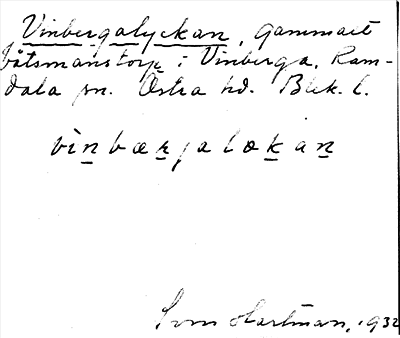 Vinbergalyckan, gammalt
båtsmanstorp i Vinberga, Ram-
dala sn. Östra hd. Blek. l.
vìn̲bær̲jalok̲an̲
Sven Hartman, 1932